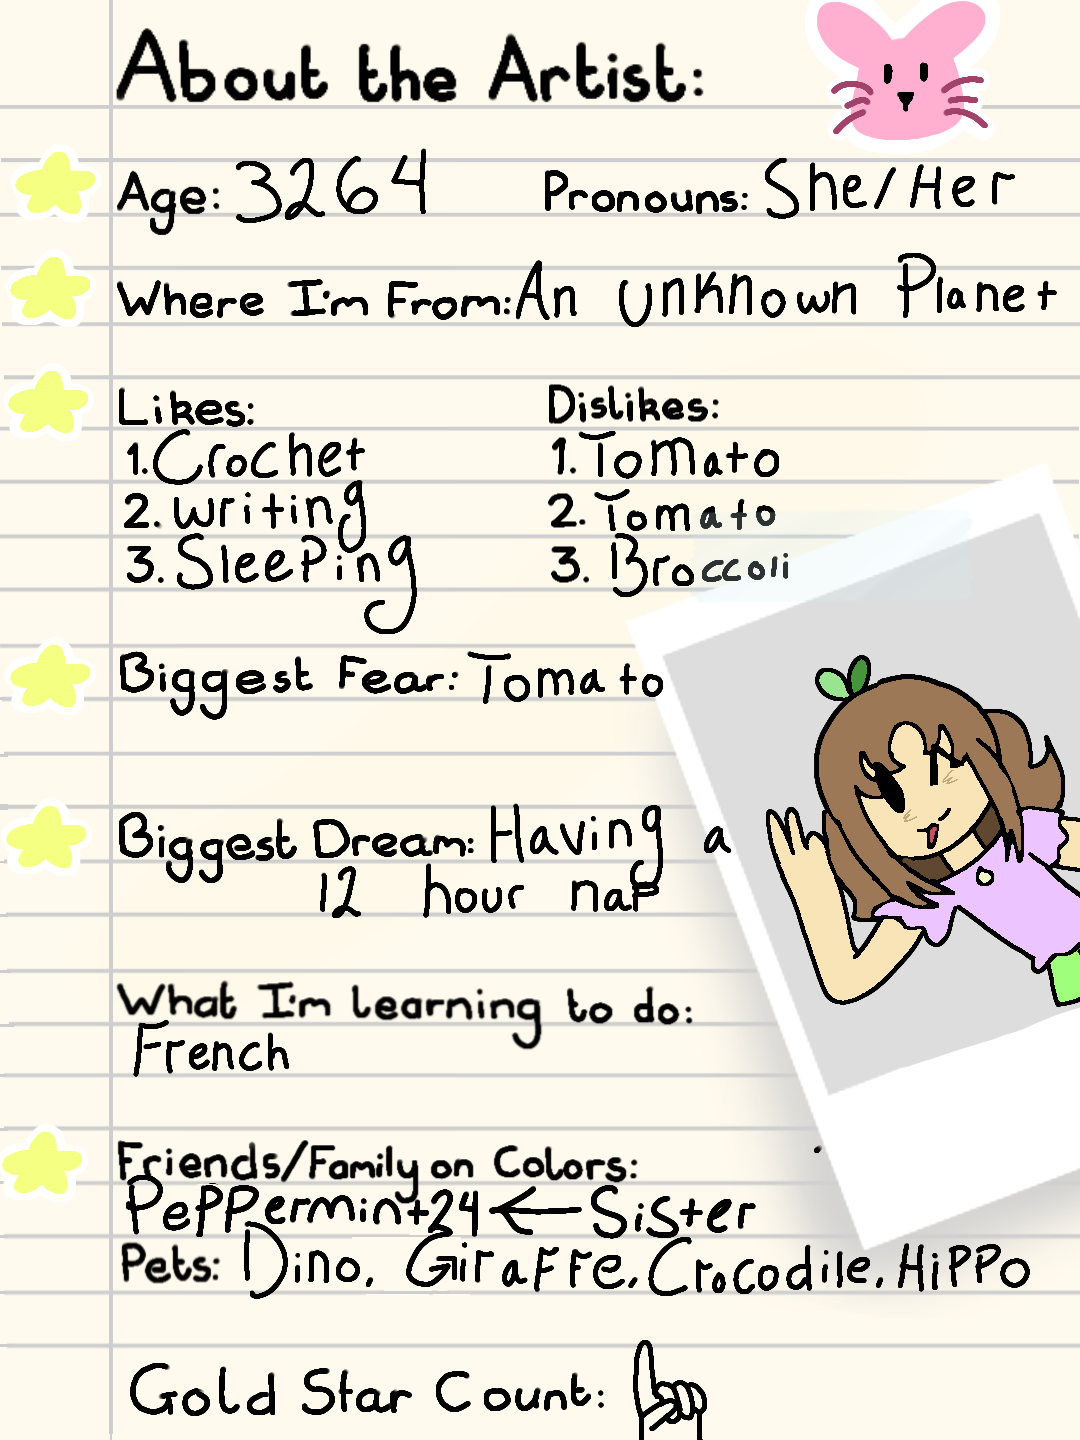 About the Artist:
Age: 3264 Pronouns: She/Her
Where I'm From: An unknown Planet
Likes: Dislikes:
1. Crochet 1. Tomato
2. writing 2. Tomato
3. Sleeping 3. Broccoli
Biggest Fear: Tomato
Biggest Dream: Having a
12 hour nap
What I'm learning to do:
French
Friends/Family on Colors:
Peppermint24 ← Sister
Pets: Dino, Giraffe, Crocodile, Hippo
Gold Star Count: